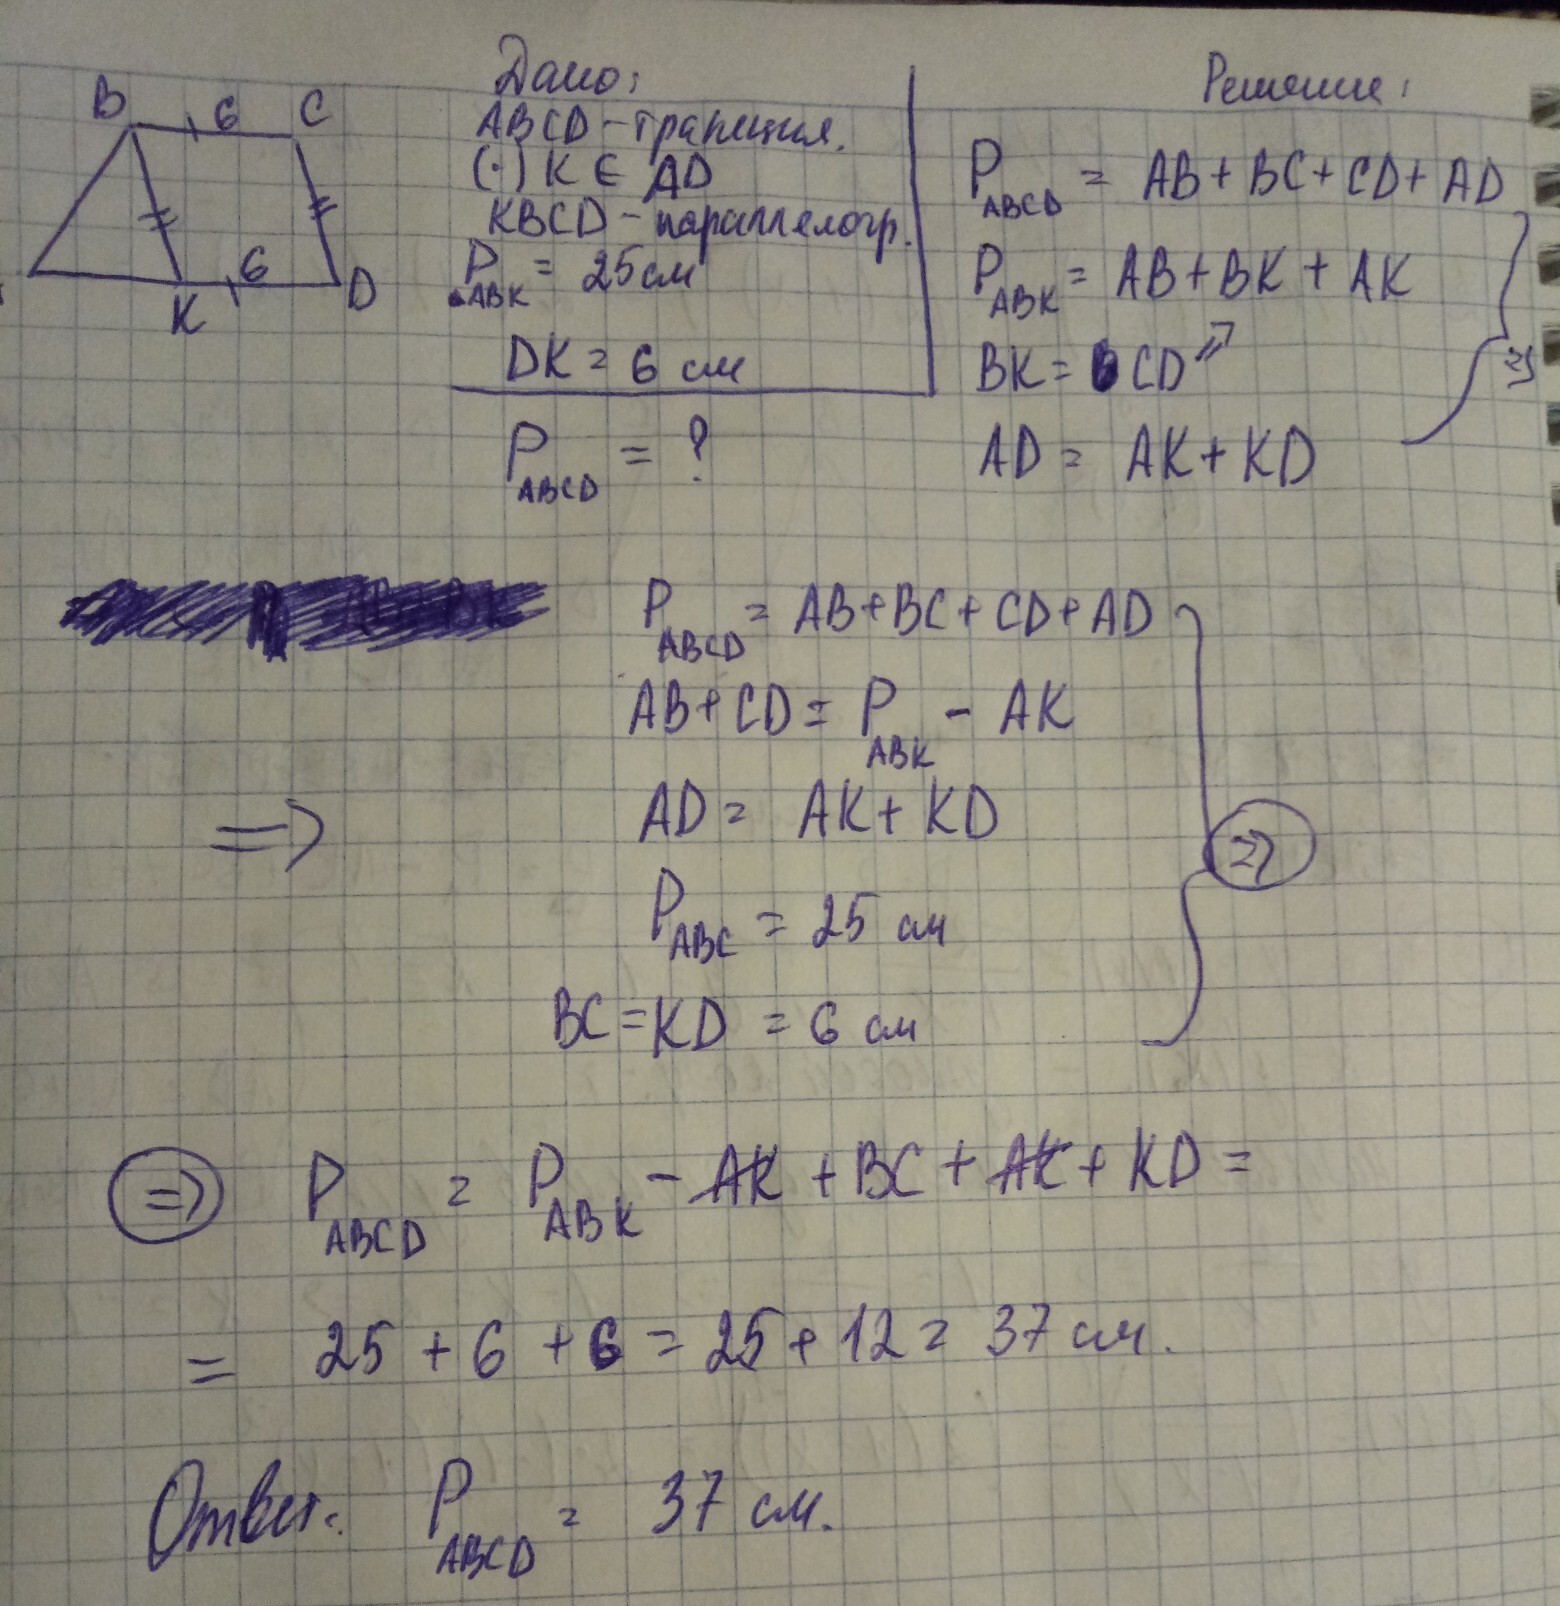 B 6 C
6
K D
Дано:
ABCD – трапеция.
(·) K ∈ AD
KBCD – параллелогр.
P_ABK = 25 см
DK = 6 см
P_ABCD = ?
Решение:
P_ABCD = AB + BC + CD + AD
P_ABK = AB + BK + AK
BK = CD ⇒
AD = AK + KD
⇒
P_ABCD = AB + BC + CD + AD
AB + CD = P_ABK − AK
⇒ AD = AK + KD ⇒
P_ABC = 25 см
BC = KD = 6 см
⇒ P_ABCD = P_ABK − AK + BC + AK + KD =
= 25 + 6 + 6 = 25 + 12 = 37 см.
Ответ: P_ABCD = 37 см.